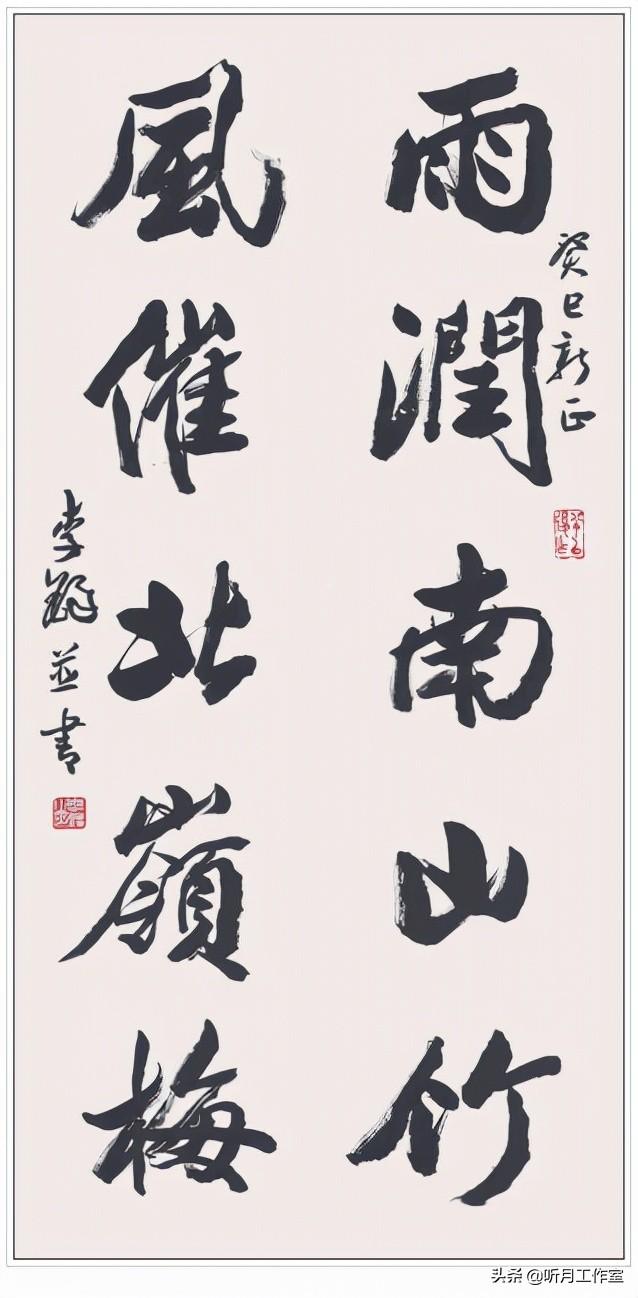 癸巳新正
雨潤南山竹
風催北嶺梅
李 並書
头条 @听月工作室